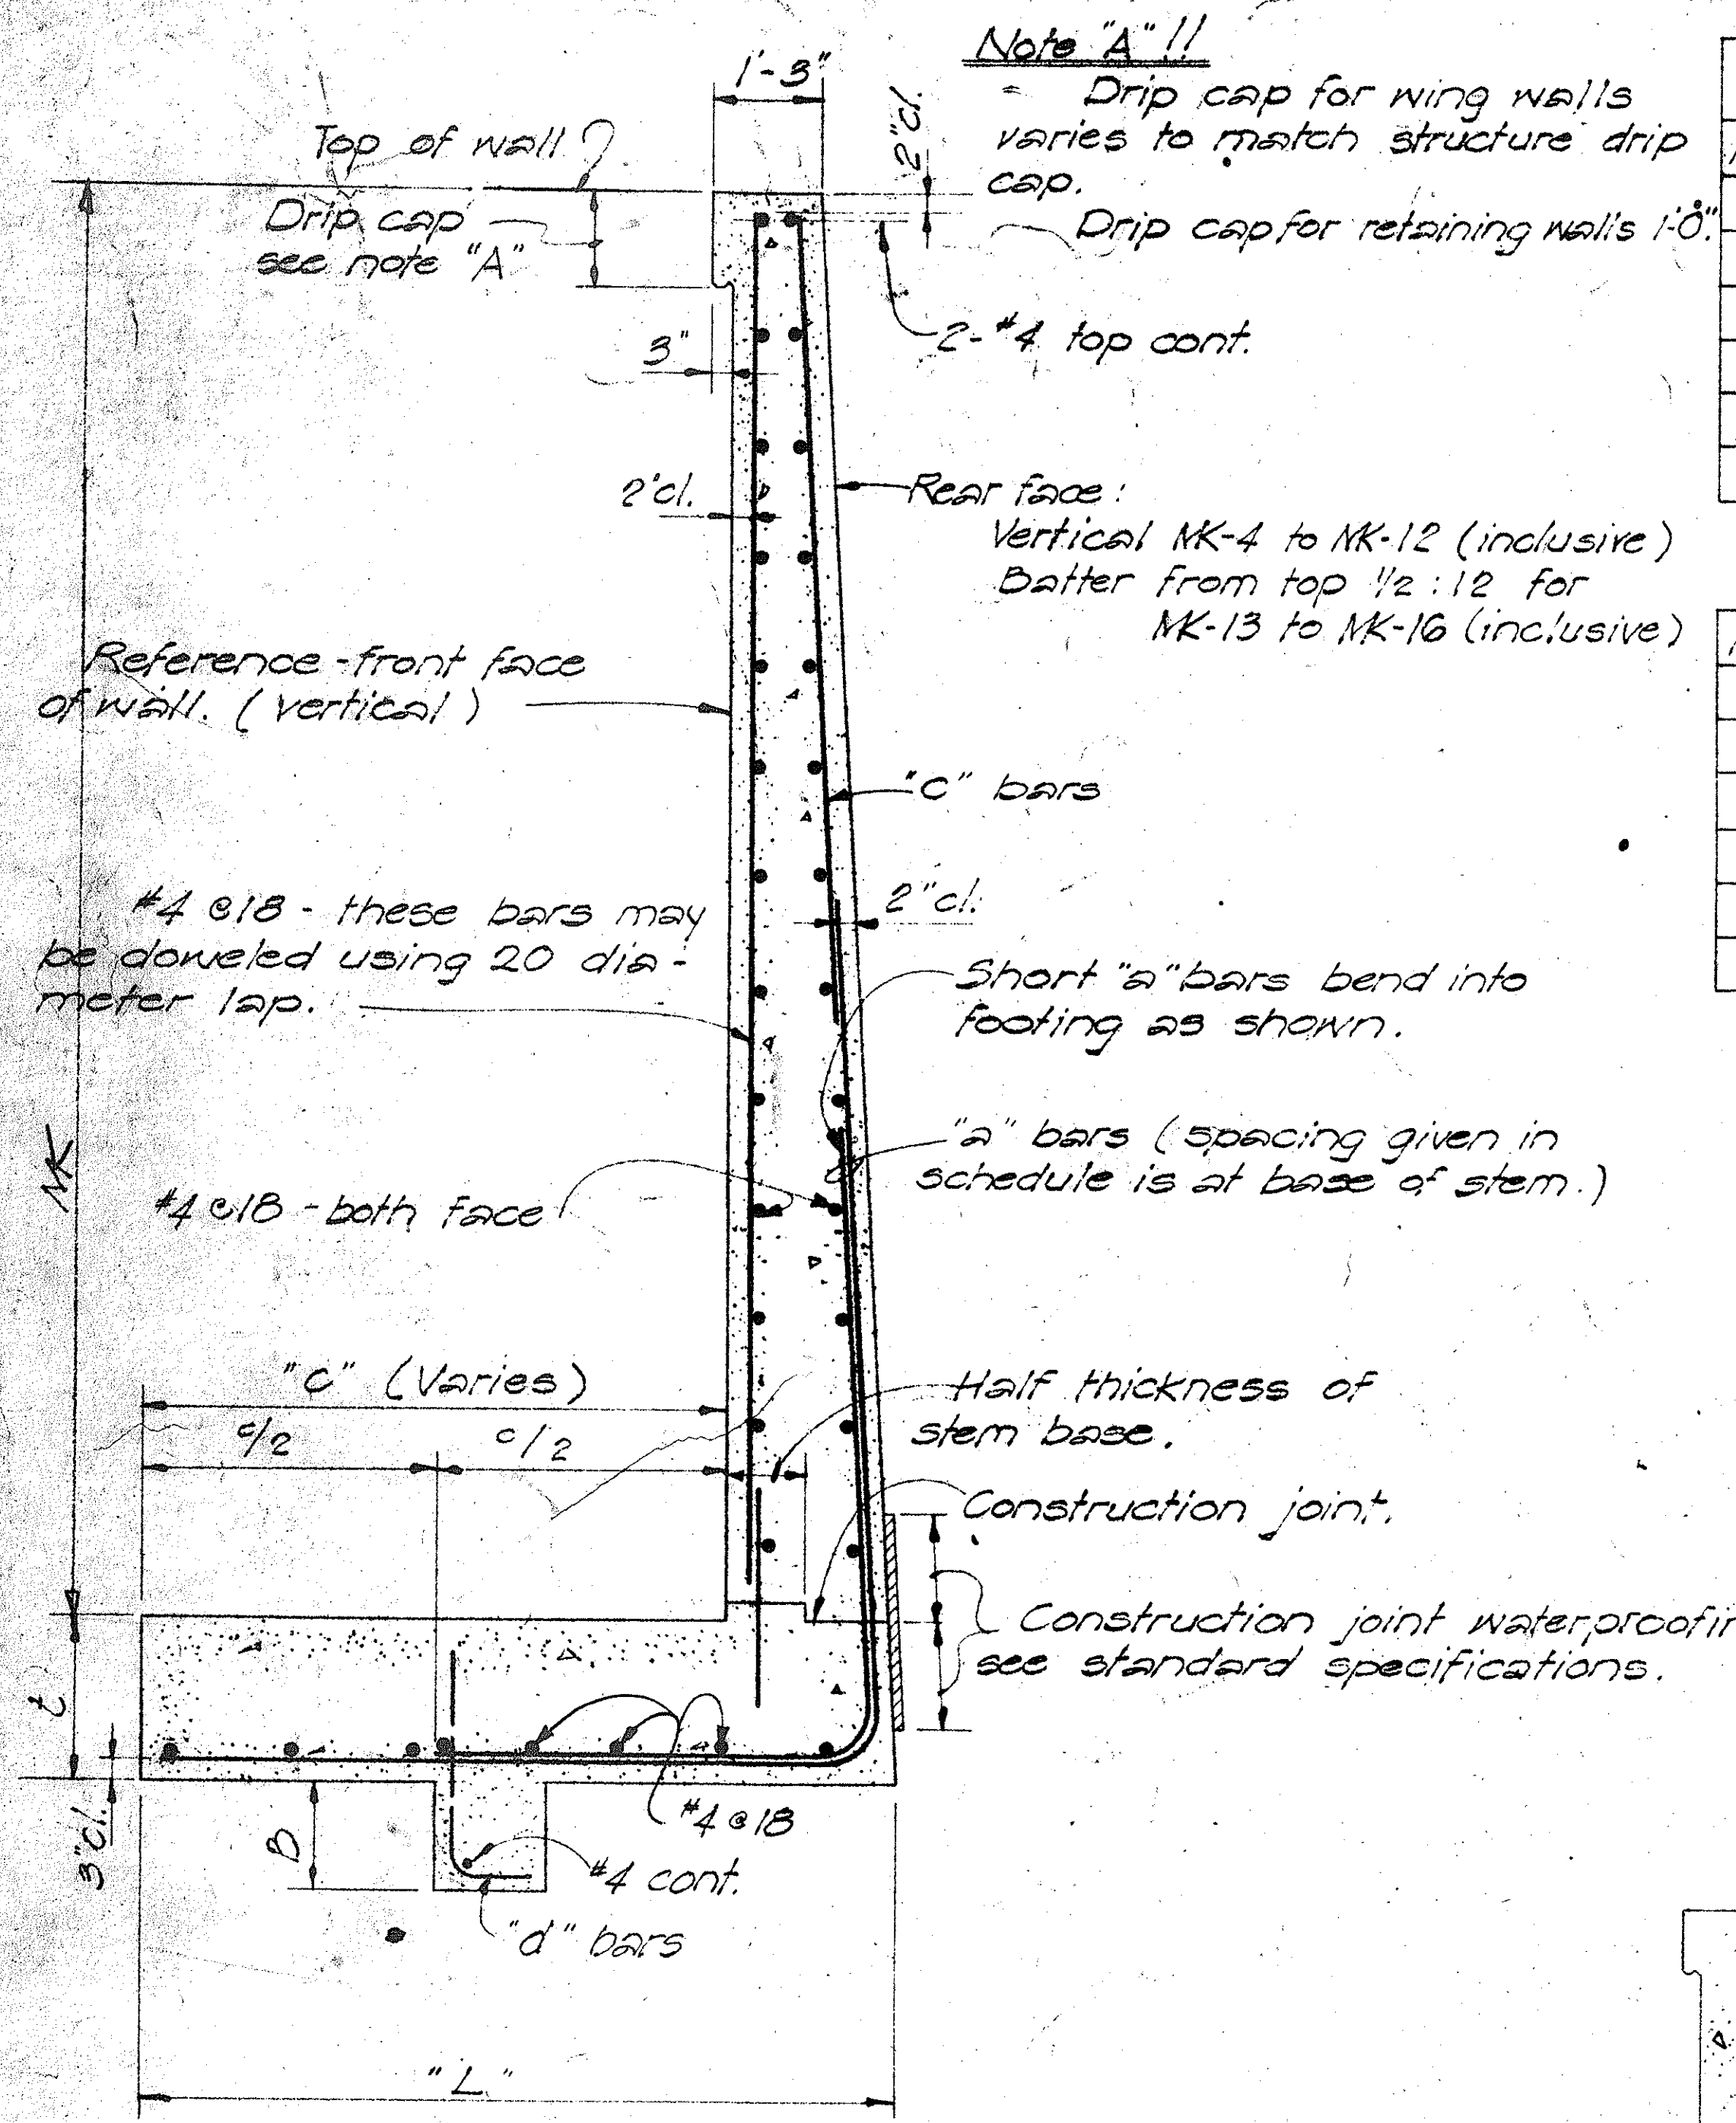 Note "A" !!
1'-3"
2"cl.
Drip cap for wing walls
varies to match structure drip
cap.
Drip cap for retaining walls 1'-0".
Top of wall
Drip cap
see note "A"
2-#4 top cont.
3"
2"cl.
Rear face:
Vertical MK-4 to MK-12 (inclusive)
Batter from top 1/2:12 for
MK-13 to MK-16 (inclusive)
Reference-front face
of wall. (vertical)
"C" bars
2"cl.
#4 @18 - these bars may
be doweled using 20 dia-
meter lap.
Short "a" bars bend into
footing as shown.
"a" bars (spacing given in
schedule is at base of stem.)
MK
#4 @18 - both face
"C" (Varies)
c/2
c/2
Half thickness of
stem base.
Construction joint.
Construction joint waterproofin
see standard specifications.
t
3"cl.
B
#4 @18
#4 cont.
"d" bars
"L"